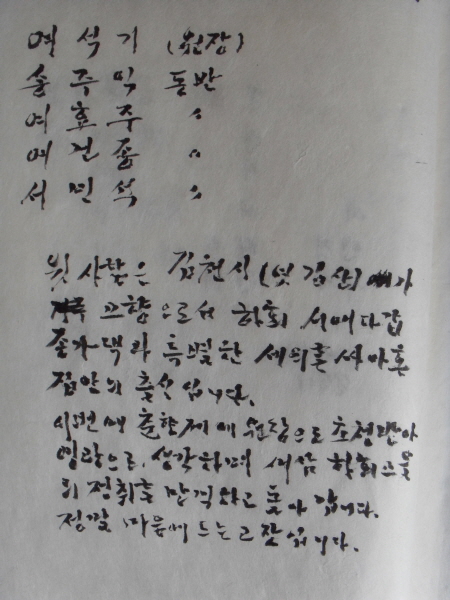 여 석 기 (원장)
송 주 익 동반
여 효 주 〃
여 건 종 〃
서 민 석 〃
윗 사람은 김천시 (옛 김산) 가
고향으로서 하회 서애 대감
종가댁과 특별한 세의를 쌓아온
집안의 출신입니다.
이번에 출향제에 원장으로 초청받아
영광으로 생각하며 새삼 하회마을
의 정취를 만끽하고 돌아갑니다.
정말 마음에 드는 고장입니다.